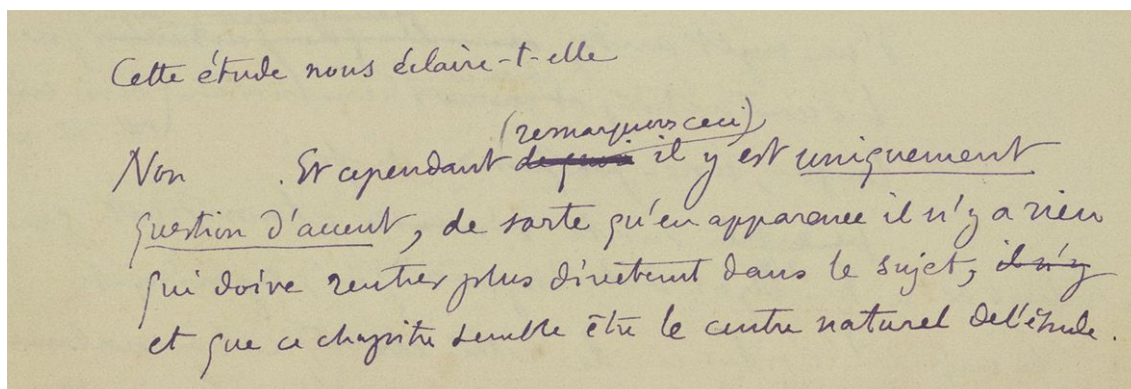 Cette étude nous éclaire-t-elle
(remarquons ceci)
Non . Et cependant de quoi il y est uniquement
question d'accent, de sorte qu'en apparence il n'y a rien
qui doive rentrer plus directement dans le sujet, il n'y
et que ce chapitre semble être le centre naturel de l'étude.